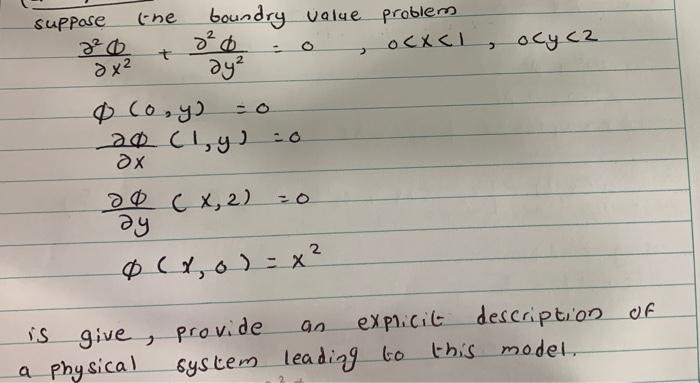 suppose the boundry value problem
∂²Φ/∂x² + ∂²Φ/∂y² = 0 , 0<x<1 , 0<y<2
Φ (0,y) = 0
∂Φ/∂x (1,y) = 0
∂Φ/∂y (x,2) = 0
Φ (x,0) = x²
is give, provide an explicit description of
a physical system leading to this model.